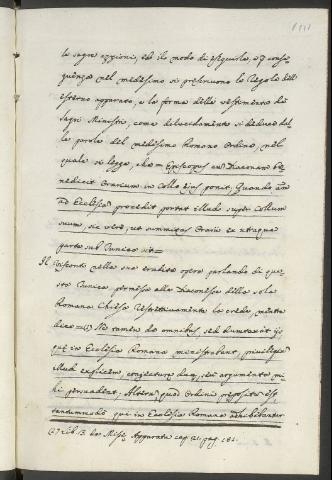 le sagre azzioni, ed il modo di eseguirle, e in conse-
quenza nel medesimo si prescrivono le Regole dell'
esterno apparato, e la forma delle vestimenta de'
sagri Ministri, come dilucidamente si deduce dal-
le parole del medesimo Romano Ordine, nel
quale si legge, che = Episcopus cum Diaconam be-
nedicit Orarium in Collo eius ponit, Quando autem
ad Ecclesiam procedit portat illud super Collum
suum, sic vero, ut summitas Orarii ex utraque
parte sub Tunica sit =
Il Visconti nella sua erudita opera, parlando di que-
sta Tunica permessa alle Diaconesse della sola
Romana Chiesa restrittivamente lo crede, mentre
dice = (7) Ne tamen de omnibus, sed dumtaxat ijs
quę in Ecclesia Romana ministrabant, privilegium
illud explicem, conjecturę duę, seu argumenta mi-
hi persuadent; Altera quod Ordini reposita est,
tantummodo qui in Ecclesia Romana adhibebantur
(7) Lib. 3 de Miss. Apparatu cap. 21. pag. 181.